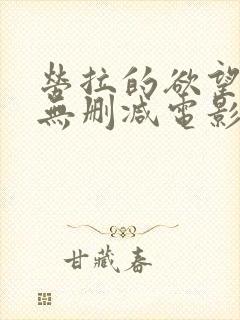 勞拉的欲望
無刪減電影
甘藏春